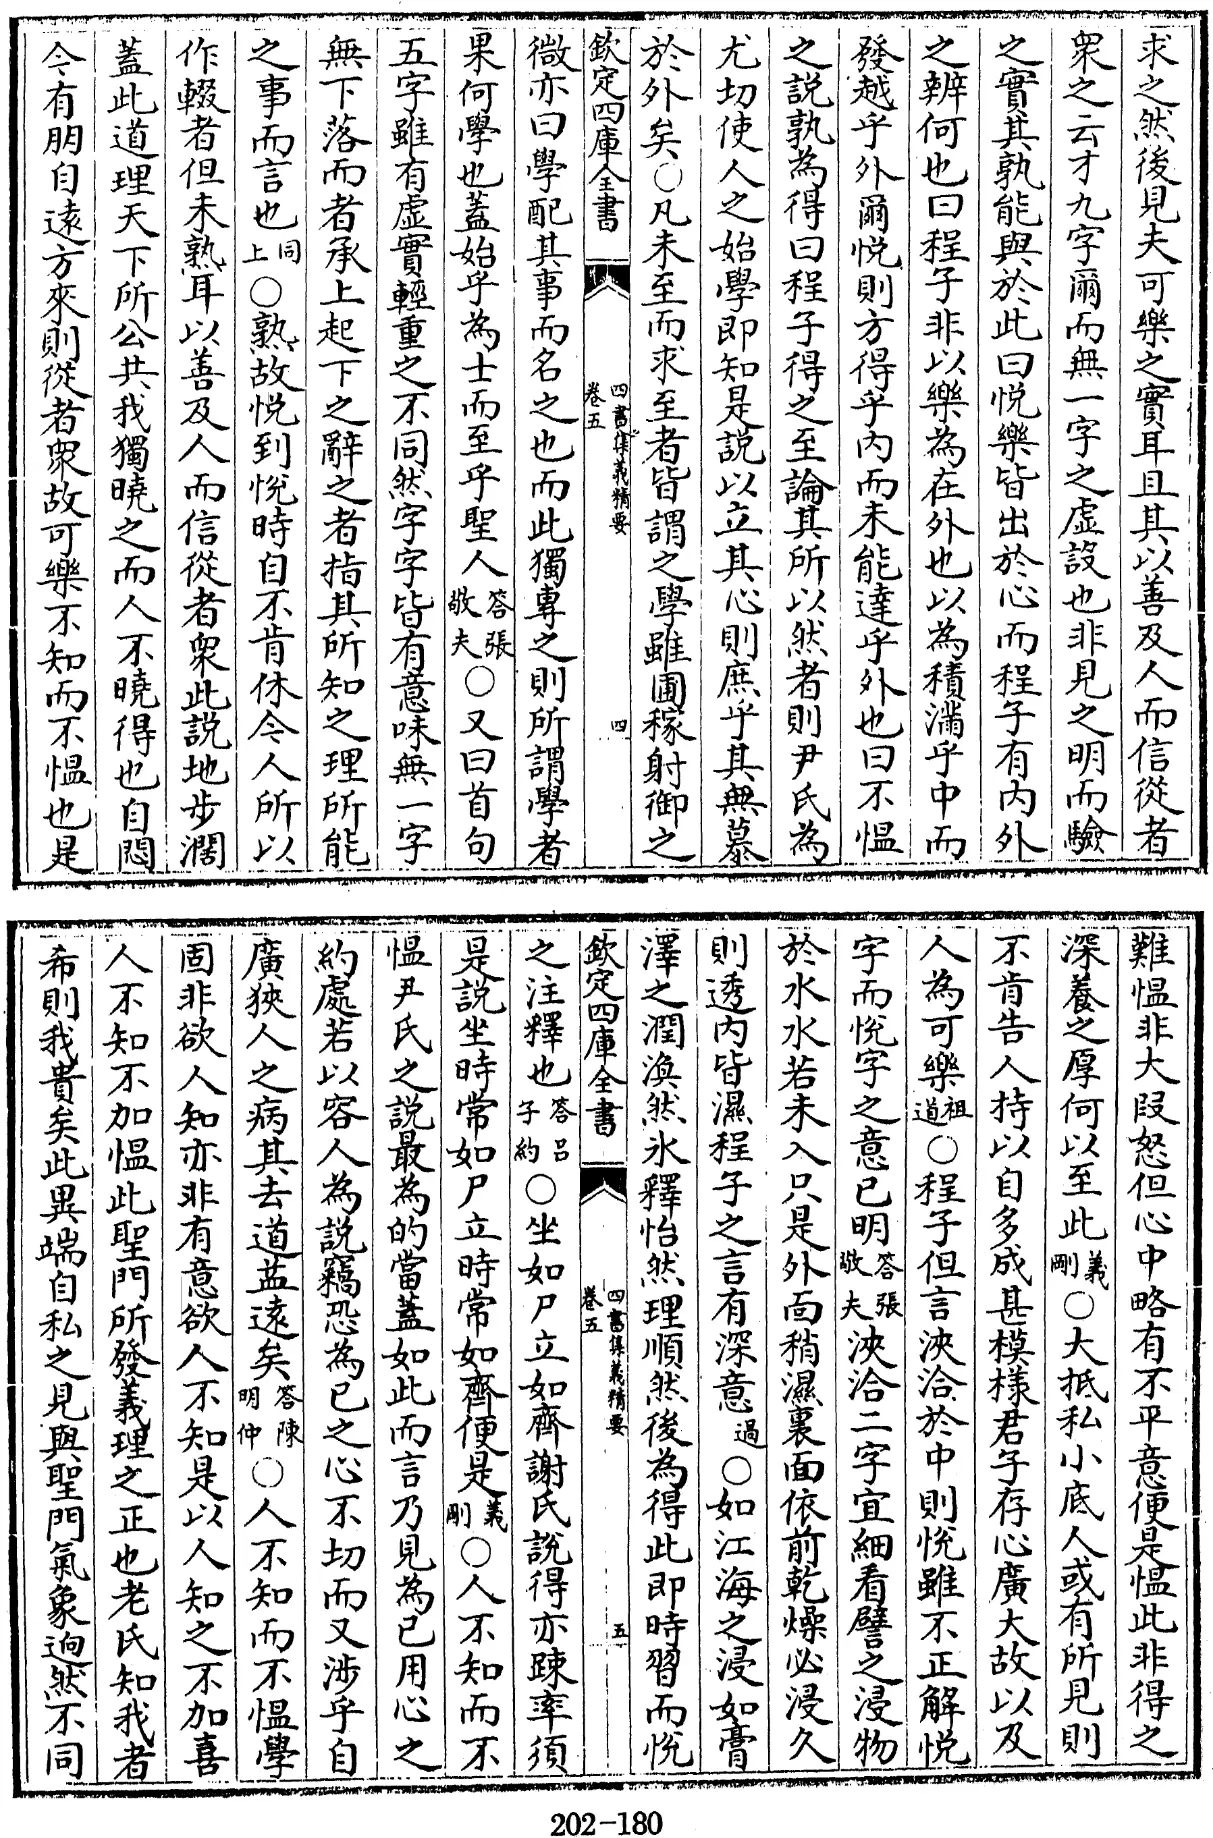 求之然後見夫可樂之實耳且其以善及人而信從者
衆之云才九字爾而無一字之虛設也非見之明而驗
之實其孰能與於此曰悅樂皆出於心而程子有內外
之辨何也曰程子非以樂為在外也以為積滿乎中而
發越乎外爾悅則方得乎內而未能達乎外也曰不慍
之說孰為得曰程子得之至論其所以然者則尹氏為
尤切使人之始學即知是說以立其心則庶乎其無慕
於外矣○凡未至而求至者皆謂之學雖圃稼射御之
欽定四庫全書
四書集義精要
卷五
四
微亦曰學配其事而名之也而此獨專之則所謂學者
果何學也蓋始乎為士而至乎聖人答張敬夫○又曰首句
五字雖有虛實輕重之不同然字字皆有意味無一字
無下落而者承上起下之辭之者指其所知之理所能
之事而言也同上○熟故悅到悅時自不肯休今人所以
作輟者但未熟耳以善及人而信從者衆此說地步濶
蓋此道理天下所公共我獨曉之而人不曉得也自悶
今有朋自遠方來則從者衆故可樂不知而不慍也是
難慍非大叚怒但心中略有不平意便是慍此非得之
深養之厚何以至此義剛○大抵私小底人或有所見則
不肯告人持以自多成甚模樣君子存心廣大故以及
人為可樂祖道○程子但言浹洽於中則悅雖不正解悅
字而悅字之意已明答張敬夫浹洽二字宜細看譬之浸物
於水水若未入只是外面稍濕裏面依前乾燥必浸久
則透內皆濕程子之言有深意過○如江海之浸如膏
澤之潤渙然氷釋怡然理順然後為得此即時習而悅
欽定四庫全書
四書集義精要
卷五
五
之注釋也答呂子約○坐如尸立如齊謝氏說得亦踈率須
是說坐時常如尸立時常如齊便是義剛○人不知而不
慍尹氏之說最為的當蓋如此而言乃見為已用心之
約處若以容人為說竊恐為已之心不切而又涉乎自
廣狹人之病其去道益遠矣答陳明仲○人不知而不慍學
固非欲人知亦非有意欲人不知是以人知之不加喜
人不知不加慍此聖門所發義理之正也老氏知我者
希則我貴矣此異端自私之見與聖門氣象逈然不同
202-180